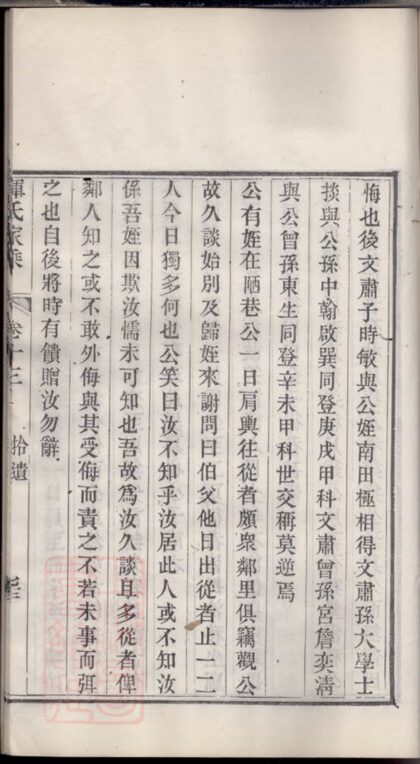 悔也後文肅子時敏與公姪南田極相得文肅孫大學士
掞與公孫中翰啟巽同登庚戌甲科文肅曾孫宮詹奕清
與公曾孫東生同登辛未甲科世交稱莫逆焉
公有姪在陋巷公一日肩輿往從者頗衆鄰里俱竊觀公
故久談始別及歸姪來謝問曰伯父他日出從者止一二
人今日獨多何也公笑曰汝不知乎汝居此人或不知汝
係吾姪因欺汝懦未可知也吾故爲汝久談且多從者俾
鄰人知之或不敢外侮與其受侮而責之不若未事而弭
之也自後將時有饋贈汝勿辭
惲氏家乘 卷十三 拾遺